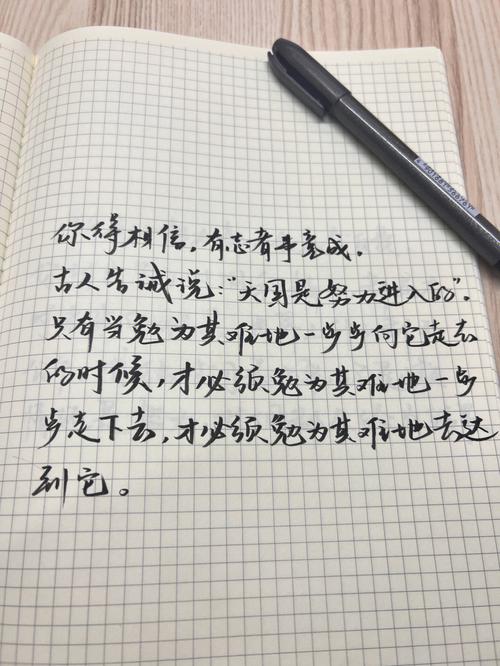 你得相信，有志者事竟成．
古人告诫说：“天国是努力进入的”．
只有当勉为其难地一步步向它走去
的时候，才必须勉为其难地一步
步走下去，才必须勉为其难地去达
到它。